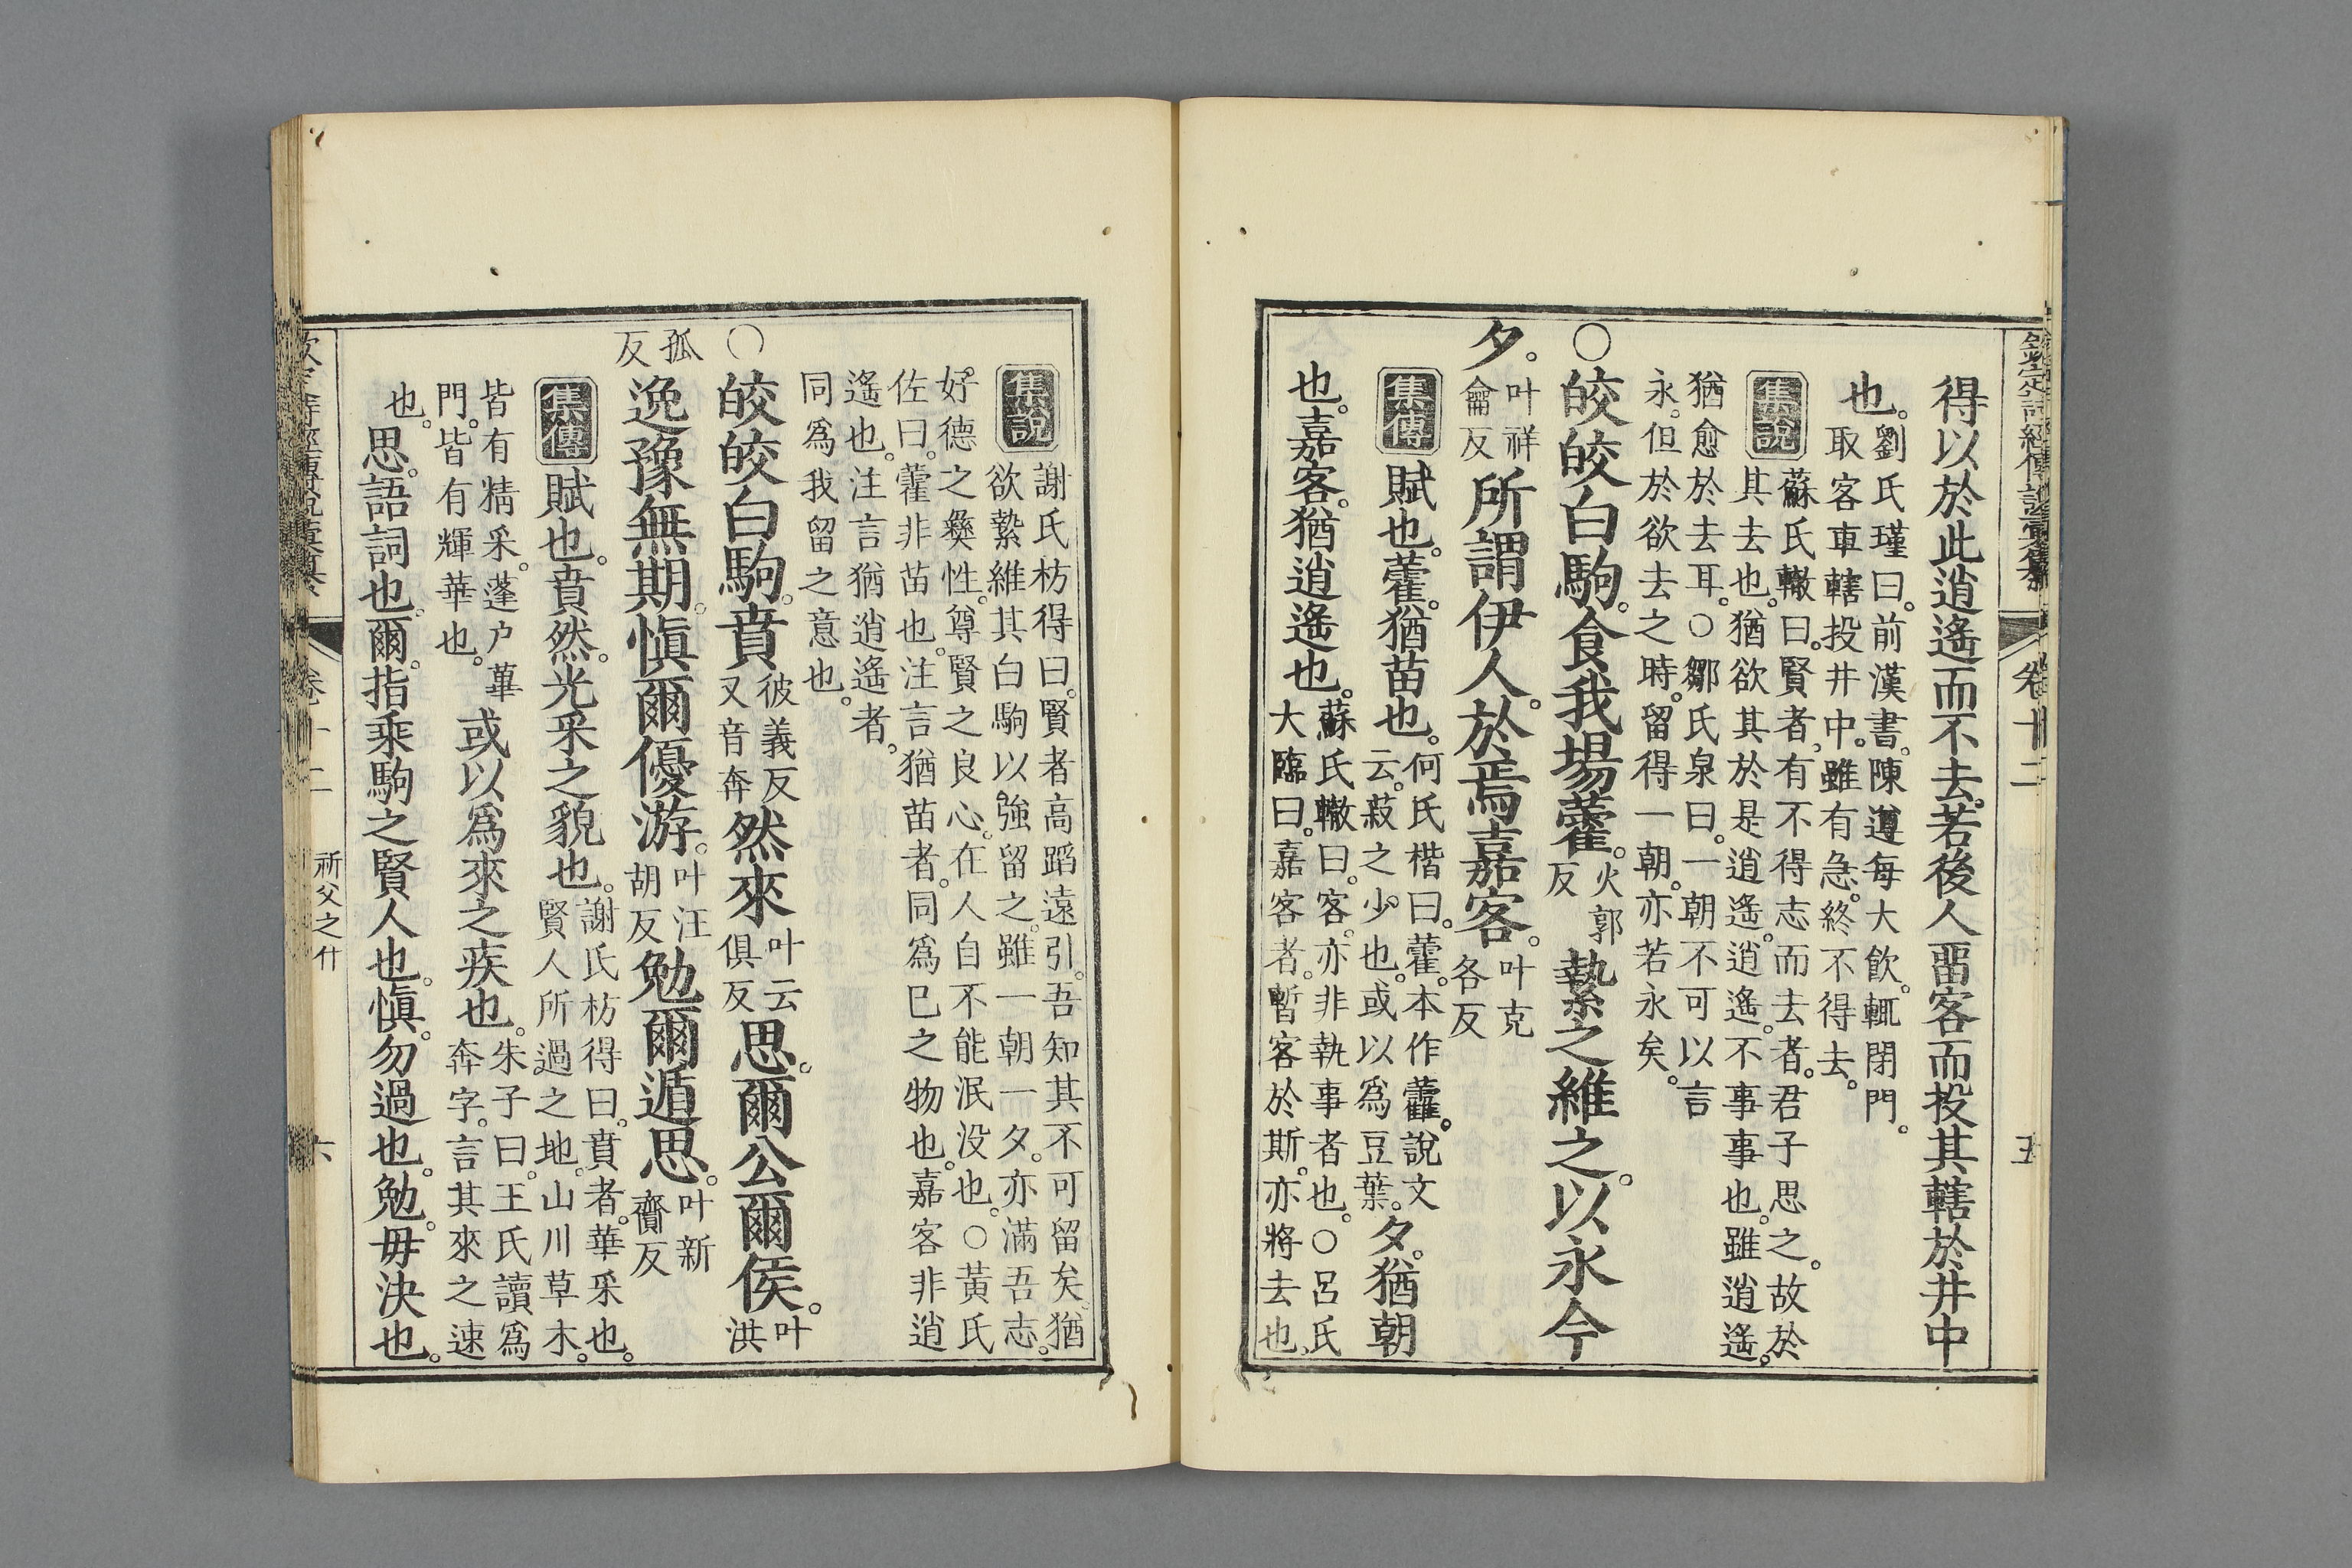 欽定詩經傳說彙纂 卷十二 五
得以於此逍遙而不去。若後人畱客而投其轄於井中
也。劉氏瑾曰。前漢書。陳遵每大飲。輒閉門。
取客車轄投井中。雖有急。終不得去。
集說 蘇氏轍曰。賢者有不得志而去者。君子思之。故於
其去也。猶欲其於是逍遙。逍遙。不事事也。雖逍遙。
猶愈於去耳。○鄒氏泉曰。一朝不可以言
永。但於欲去之時。留得一朝。亦若永矣。
○皎皎白駒。食我場藿。火郭反縶之維之。以永今
夕。叶祥龠反所謂伊人。於焉嘉客。叶克各反
集傳 賦也。藿。猶苗也。何氏楷曰。藿。本作蘿。說文
云。菽之少也。或以為豆葉。夕。猶朝
也。嘉客。猶逍遙也。蘇氏轍曰。客。亦非執事者也。○呂氏
大臨曰。嘉客者。暫客於斯。亦將去也。
集說 謝氏枋得曰。賢者高蹈遠引。吾知其不可留矣。猶
欲縶維其白駒以強留之。雖一朝一夕。亦滿吾志。
好德之彝性。尊賢之良心。在人自不能泯没也。○黃氏
佐曰。藿非苗也。注言猶苗者。同爲巳之物也。嘉客非逍
遙也。注言猶逍遙者。
同爲我留之意也。
○皎皎白駒。賁彼義反又音奔然來叶云俱反思。爾公爾侯。叶洪
孤反逸豫無期。愼爾優游。叶汪胡反勉爾遁思。叶新齎反
集傳 賦也。賁然。光采之貌也。謝氏枋得曰。賁者。華采也。
賢人所過之地。山川草木。
皆有精采。蓬户蓽
門。皆有輝華也。或以爲來之疾也。朱子曰。王氏讀爲
奔字。言其來之速
也。思。語詞也。爾。指乘駒之賢人也。愼。勿過也。勉。毋決也。
卷十二 祈父之什 六